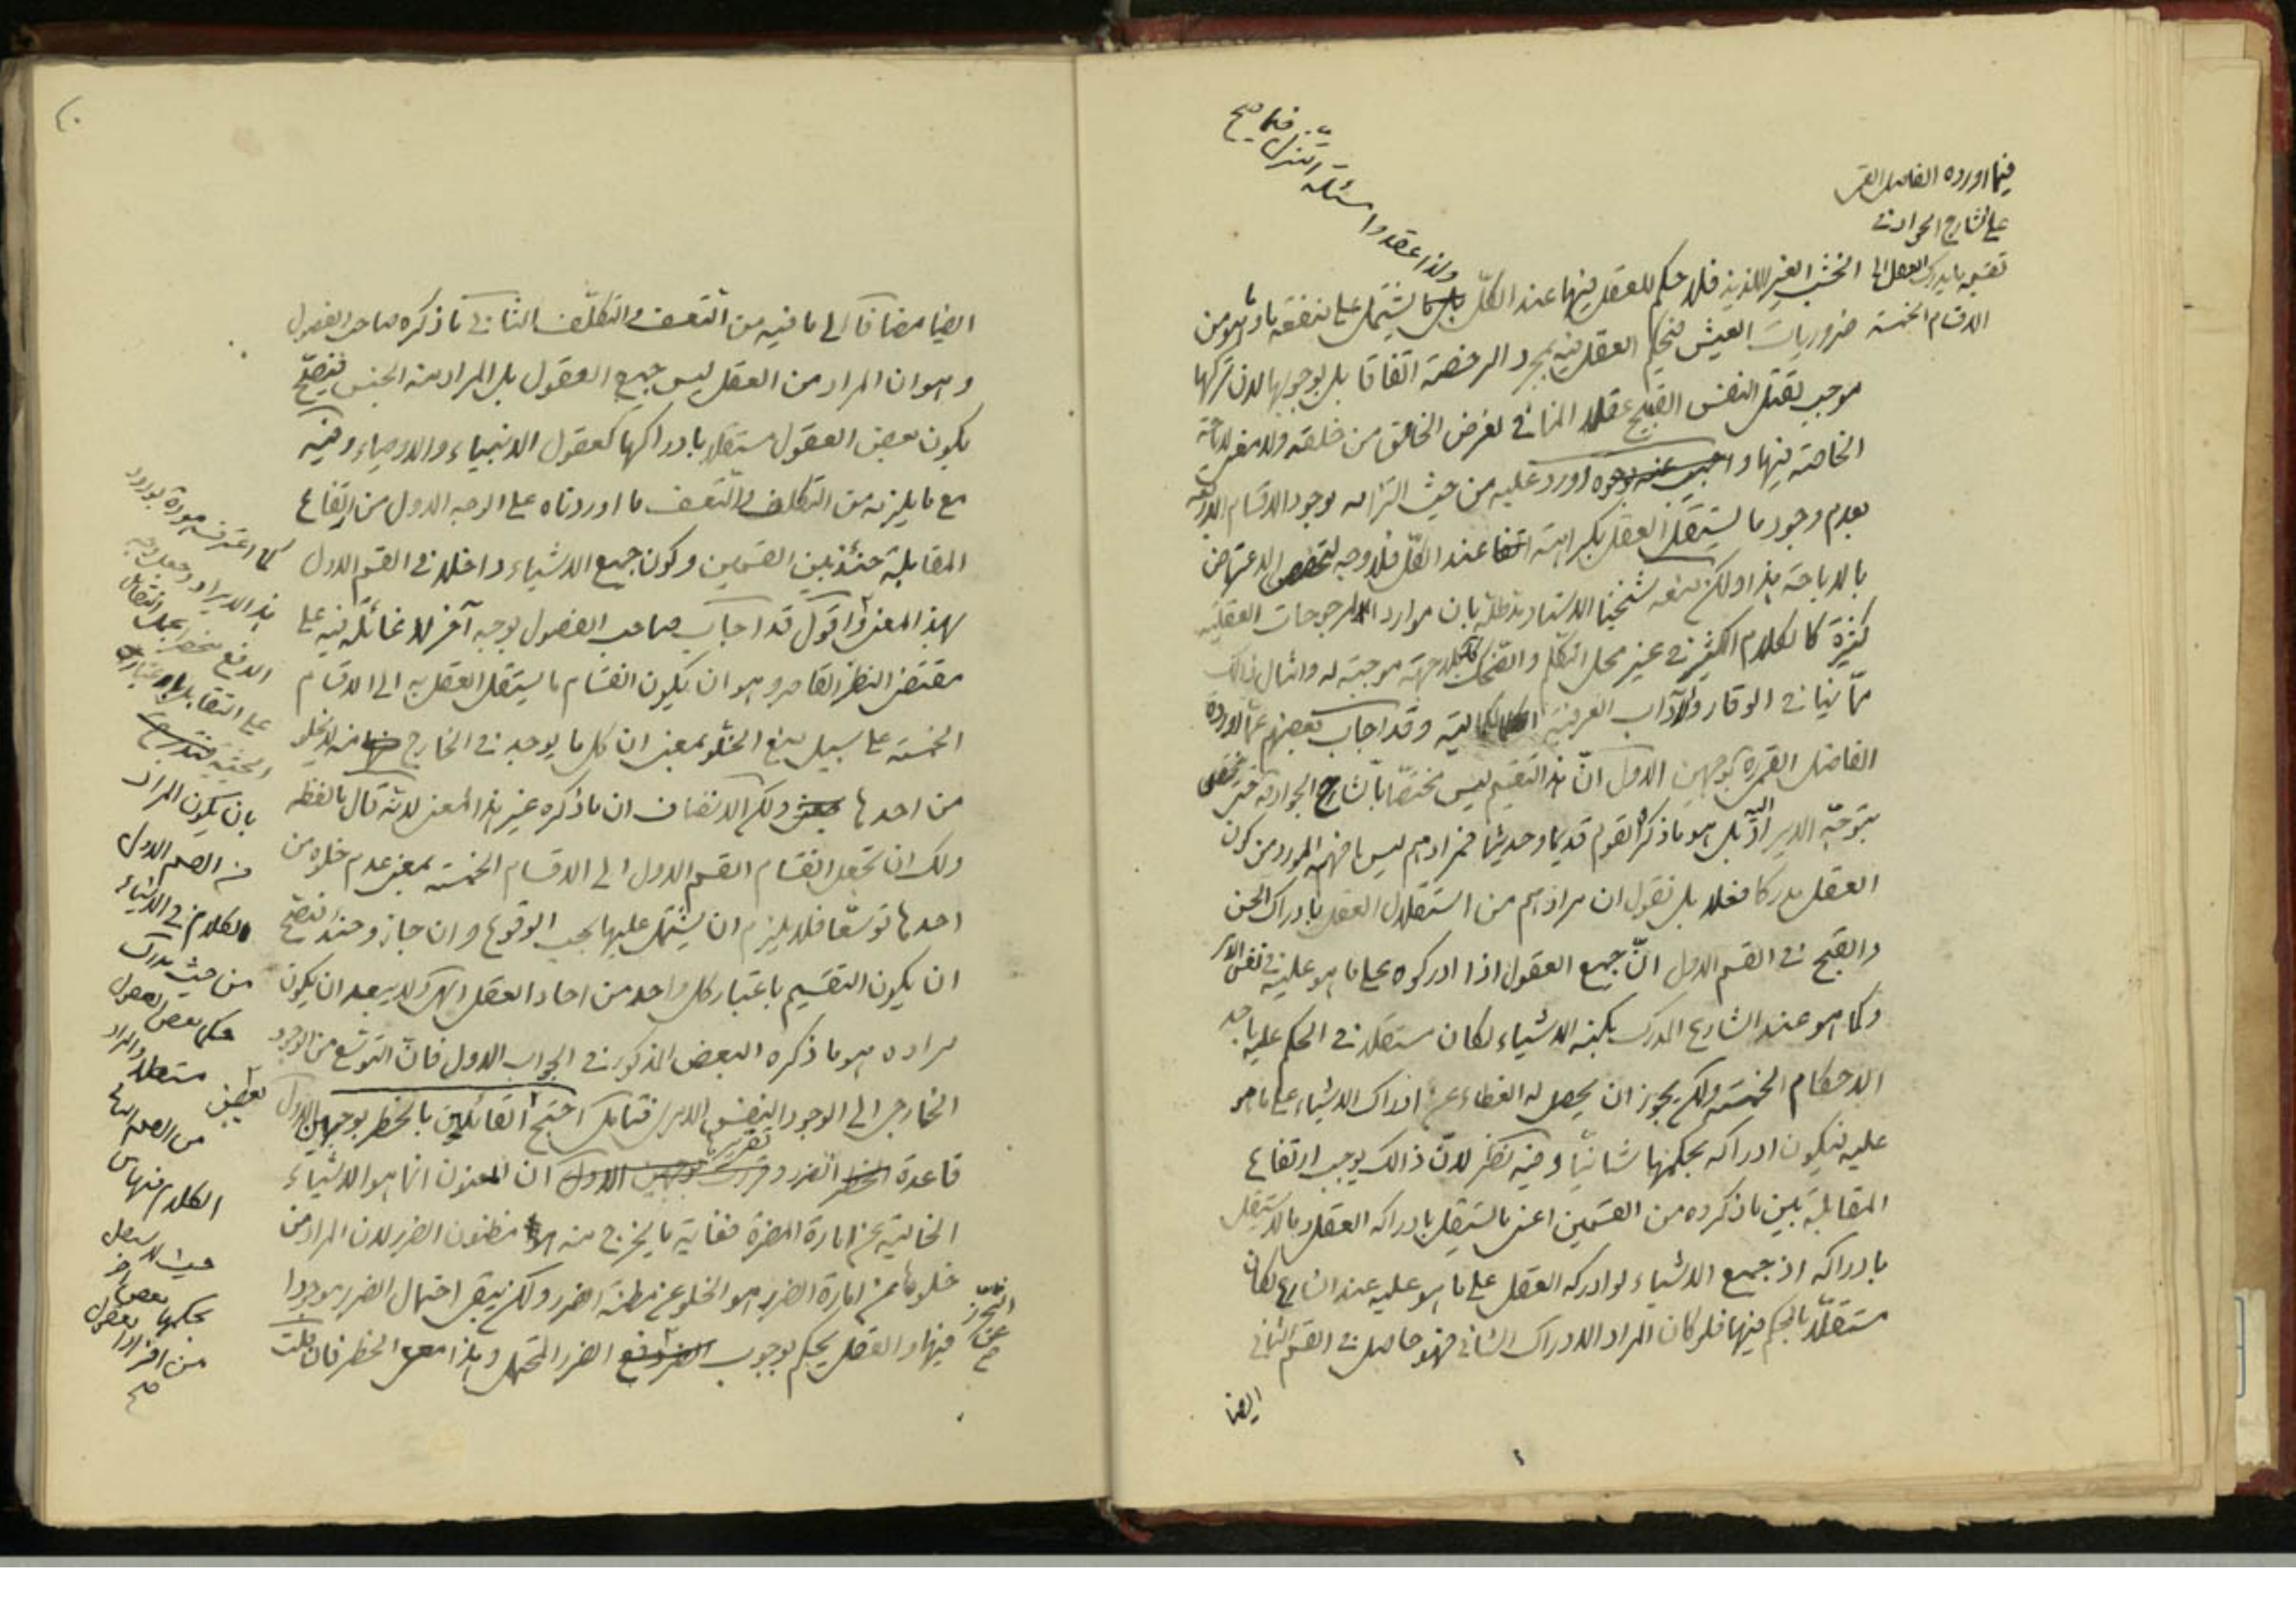 فيما اورده الفاضل القمى
على الشارح الجواد فى
تقسيمه ما يدرك العقل الى
الاقسام الخمسة
ولذا عقدوا مسئلة التنزل فيها صح
الخشب الغير اللذيذ فلا حكم للعقل فيها عند الكلّ ما يشتمل على منفعة ما وهو من
ضروريات العيش فيحكم العقل فيه بمجرد الرخصة اتفاقا بل بوجوبها لان تركها
موجب لقتل النفس القبيح عقلا المنافى لغرض الخالق من خلقه ولا معنى للاباحة
الخاصة فيها واورد عليه من حيث التزامه بوجود الاقسام الاربعة
بعدم وجود ما يستقل العقل بكراهته عند الكلّ فلا وجه لتخصيص الاعتراض
بالاباحة هذا ولكن منعه شيخنا الاستاد مد ظله بان موارد المرجوحات العقلية
كثيرة كالكلام الكثير فى غير محل التكلم والضحك بلا جهة موجبة له وامثال ذالك
ممّا ينافى الوقار والآداب العرفية وقد اجاب بعضهم عمّا اورده
الفاضل القمى ره بوجهين الاول انّ هذا التقسيم ليس مختصّا بالشارح الجواد ره حتى
يتوجّه الايراد اليه بل هو ما ذكره القوم قديما وحديثا فمرادهم ليس ما فهمه المورد من كون
العقل مدركا فعلا بل نقول ان مرادهم من استقلال العقل بادراك الحسن
والقبح فى القسم الاول انّ جميع العقول اذا ادركوه على ما هو عليه فى نفس الامر
وكما هو عند الشارع المدرك بكنه الاشياء لكان مستقلا فى الحكم عليه باحد
الاحكام الخمسة ولكن يجوز ان يحصل له الغطاء عن ادراك الاشياء على ما هو
عليه فيكون ادراكه بحكمها شانيّا وفيه نظر لانّ ذالك يوجب ارتفاع
المقابلة بين ما ذكروه من القسمين اعنى ما يستقل بادراكه العقل وما لا يستقل
بادراكه اذ جميع الاشياء لو ادركه العقل على ما هو عليه عند الشارع لكان
مستقلّا بالحكم فيها فلو كان المراد الادراك الشانى فهو حاصل فى القسم الثانى
ايضا
ايضا مضافا الى ما فيه من التعسف والتكلّف الثانى ما ذكره صاحب الفصول
وهو ان المراد من العقل ليس جميع العقول بل المراد منه الجنس فيصحّ
بكون بعض العقول مستقلا بادراكها كعقول الانبياء والاوصياء وفيه
مع ما يلزمه من التكلف والتعسف ما اوردناه على الوجه الاول من ارتفاع
المقابلة حينئذ بين القسمين وكون جميع الاشياء داخلا فى القسم الاول
بهذا المعنى واقول قد اجاب صاحب الفصول بوجه آخر لا غائلة فيه على
مقتضى النظر القاصر وهو ان يكون انقسام ما يستقل العقل به الى الاقسام
الخمسة على سبيل منع الخلو بمعنى ان كل ما يوجد فى الخارج منه لا يخلو
من احدها ولكن الانصاف ان ما ذكره غير هذا المعنى لانّه قال ما لفظه
ولك ان تجعل انقسام القسم الاول الى الاقسام الخمسة بمعنى عدم خلوه من
احدها توسّعا فلا يلزم ان يشتمل عليها بحسب الوقوع وان جاز وحينئذ فيصحّ
ان يكون التقسيم باعتبار كل واحد من احاد العقل انتهى ولا يبعد ان يكون
مراده هو ما ذكره البعض المذكور فى الجواب الاول فانّ التوسّع من الوجود
الخارجى الى الوجود النفس الامرى فتامل احتجّ القائلين بالخطر بوجهين الاول
قاعدة الضرر وتقريره ان المعنون انما هو الاشياء
الخالية عن امارة المضرة فغاية ما يخرج منه مظنون الضرر لان المراد من
خلوها عن امارة الضرر هو الخلو عن مظنة الضرر ولكن يبقى احتمال الضرر موجودا
فيها والعقل يحكم بوجوب دفع الضرر المحتمل وهذا معنى الخطر فان قلت
هذا الايراد
بان يكون المراد
من القسم الاول
الكلام فى الاشياء
من حيث يدرك
حكمها بعض العقول
مستقلا والمراد
من القسم الثانى
الكلام فيها من
حيث لا يستقل
بحكمها بعض
صح